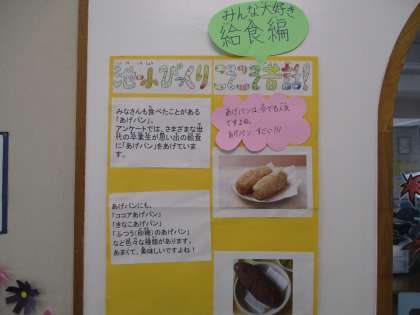 みんな大好き
給食編
びっくり
昔話!
みなさんも食べたことがある
「あげパン」。
アンケートでは、さまざまな世
代の卒業生が思い出の給食
に「あげパン」をあげていま
す。
あげパンは今でも人気
ですよね。
あげパン、すごい!!!
あげパンにも、
「ココアあげパン」
「きなこあげパン」
「ふつう(砂糖)のあげパン」
など色々な種類があります。
あまくて、美味しいですよね!